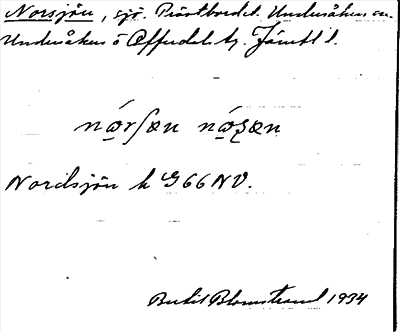 Norsjön, sjö. Prästbordet. Undersåkers sn.
Undersåkers o Offerdals tg. Jämtl l.
nǽrʃæn
Nordsjön k G66NV.
Bertil Blomstrand 1934